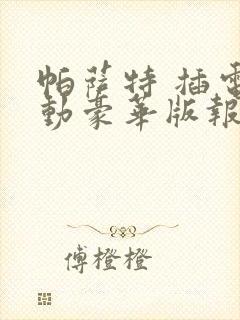 帕薩特 插電
動豪華版報
傅橙橙